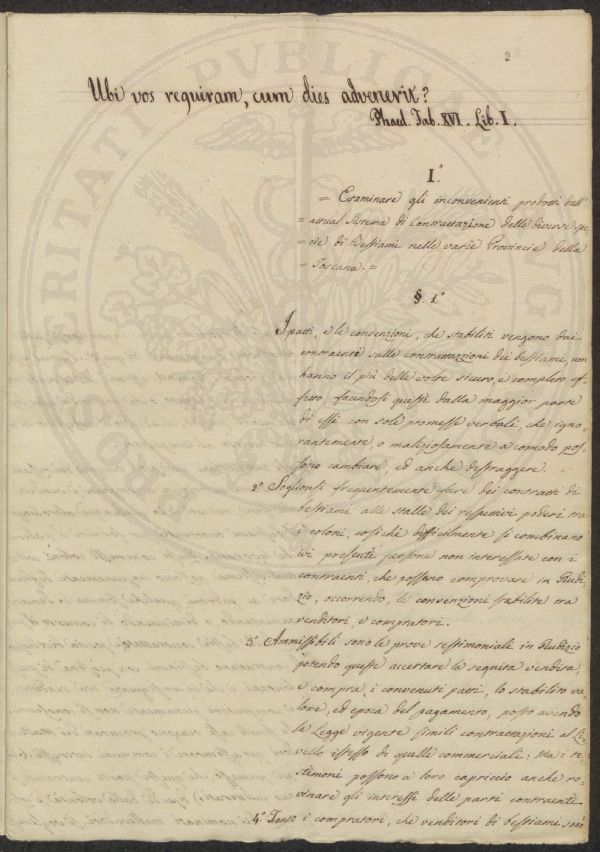 3
Ubi vos requiram, cum dies advenerit?
Phaed. Fab. XVI. Lib. I.
I.°
= Esaminare gli inconvenienti prodotti dall'
= attual Sistema di Contrattazione delle diverse spe
= cie di Bestiami nelle varie Provincie della
= Toscana. =
§. 1.°
I patti, e le convenzioni, che stabiliti vengono dai
contraenti sulle contrattazzioni dei bestiami, non
hanno il più delle volte sicuro, e completo ef-
fetto, facendosi queste dalla maggior parte
di essi con sole promesse verbali, che igno-
rantemente, o maliziosamente a comodo pos-
sono cambiare, ed anche distruggere.
2.° Soglionsi frequentemente fare dei contratti di
bestiami alle stalle dei respettivi poderi tra
i coloni, cosichè difficilmente si combinano
ivi presenti persone non interessate con i
contraenti, che possino comprovare in Giudi-
zio, occorrendo, le convenzioni stabilite tra
venditori, e compratori.
3.° Ammissibili sono le prove testimoniali in Giudizio
potendo queste accertare la seguita vendita,
e compra, i convenuti patti, lo stabilito va-
lore, ed epoca del pagamento, posto avendo
la Legge vigente simili contrattazioni al Li-
vello istesso di quelle commerciali: Ma i te-
stimoni possono a loro capriccio anche ro-
vinare gli interessi delle parti contraenti.
4.° Tanto i compratori, che venditori di bestiami sono
PROSPERITATI PVBLICAE